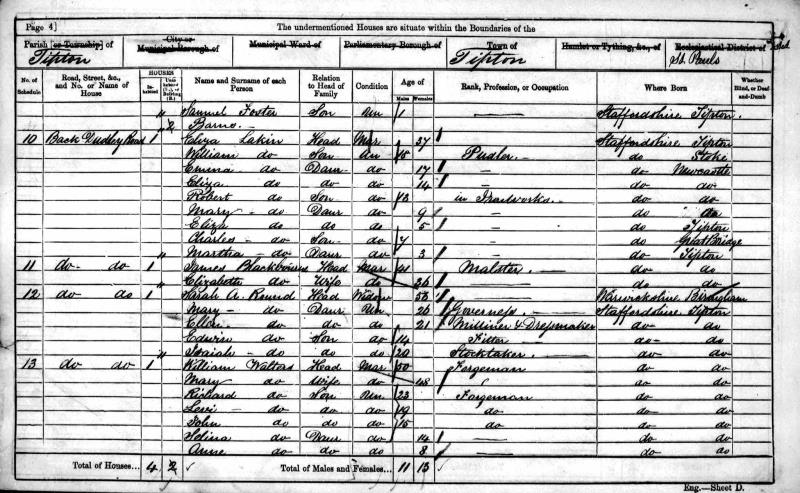 Page 4] The undermentioned Houses are situate within the Boundaries of the
Parish [or Township] of City or Municipal Borough of Municipal Ward of Parliamentary Borough of Town of Hamlet or Tything, &c., of Ecclesiastical District of
Tipton Tipton St. Pauls
No. of Schedule Road, Street, &c., and No. or Name of House HOUSES Inhabited Uninhabited (U.), or Building (B.) Name and Surname of each Person Relation to Head of Family Condition Age of Males Females Rank, Profession, or Occupation Where Born Whether Blind, or Deaf-and-Dumb
Samuel Foster Son Un 1 — Staffordshire Tipton
2 Barns —
10 Back Dudley Road 1 Eliza Lakin Head Mar 37 — Staffordshire Tipton
William do Son un 15 Pudler do Stoke
Emma do Daur do 17 — do Newcastle
Eliza do do do 14 — do do
Robert do Son do 13 in do do
Mary do Daur do 9 — do do
Eliza do do do 5 — do Tipton
Charles do Son do 7 — do Great Bridge
Martha do Daur do 3 — do Tipton
11 do do 1 James Head Mar 41 Malster do do
Elizabeth do Wife do 26 — do do
12 do do 1 Sarah A. Round Head Widow 53 — Warwickshire Birmingham
Mary do Daur Un 26 Governess Staffordshire Tipton
Ellen do do do 21 Milliner & Dressmaker do do
Edwin do Son do 14 Fitter do do
Isaiah do do do 20 Stocktaker do do
13 do do 1 William Head Mar 50 Forgeman do do
Mary do Wife do 48 do do
Richard do Son Un 23 Forgeman do do
Levi do do do 19 do do do
John do do do 15 do do do
Selina do Daur do 14 — do do
Anne do do do 8 — do do
Total of Houses... 4 2 Total of Males and Females... 11 13
Eng.—Sheet D.